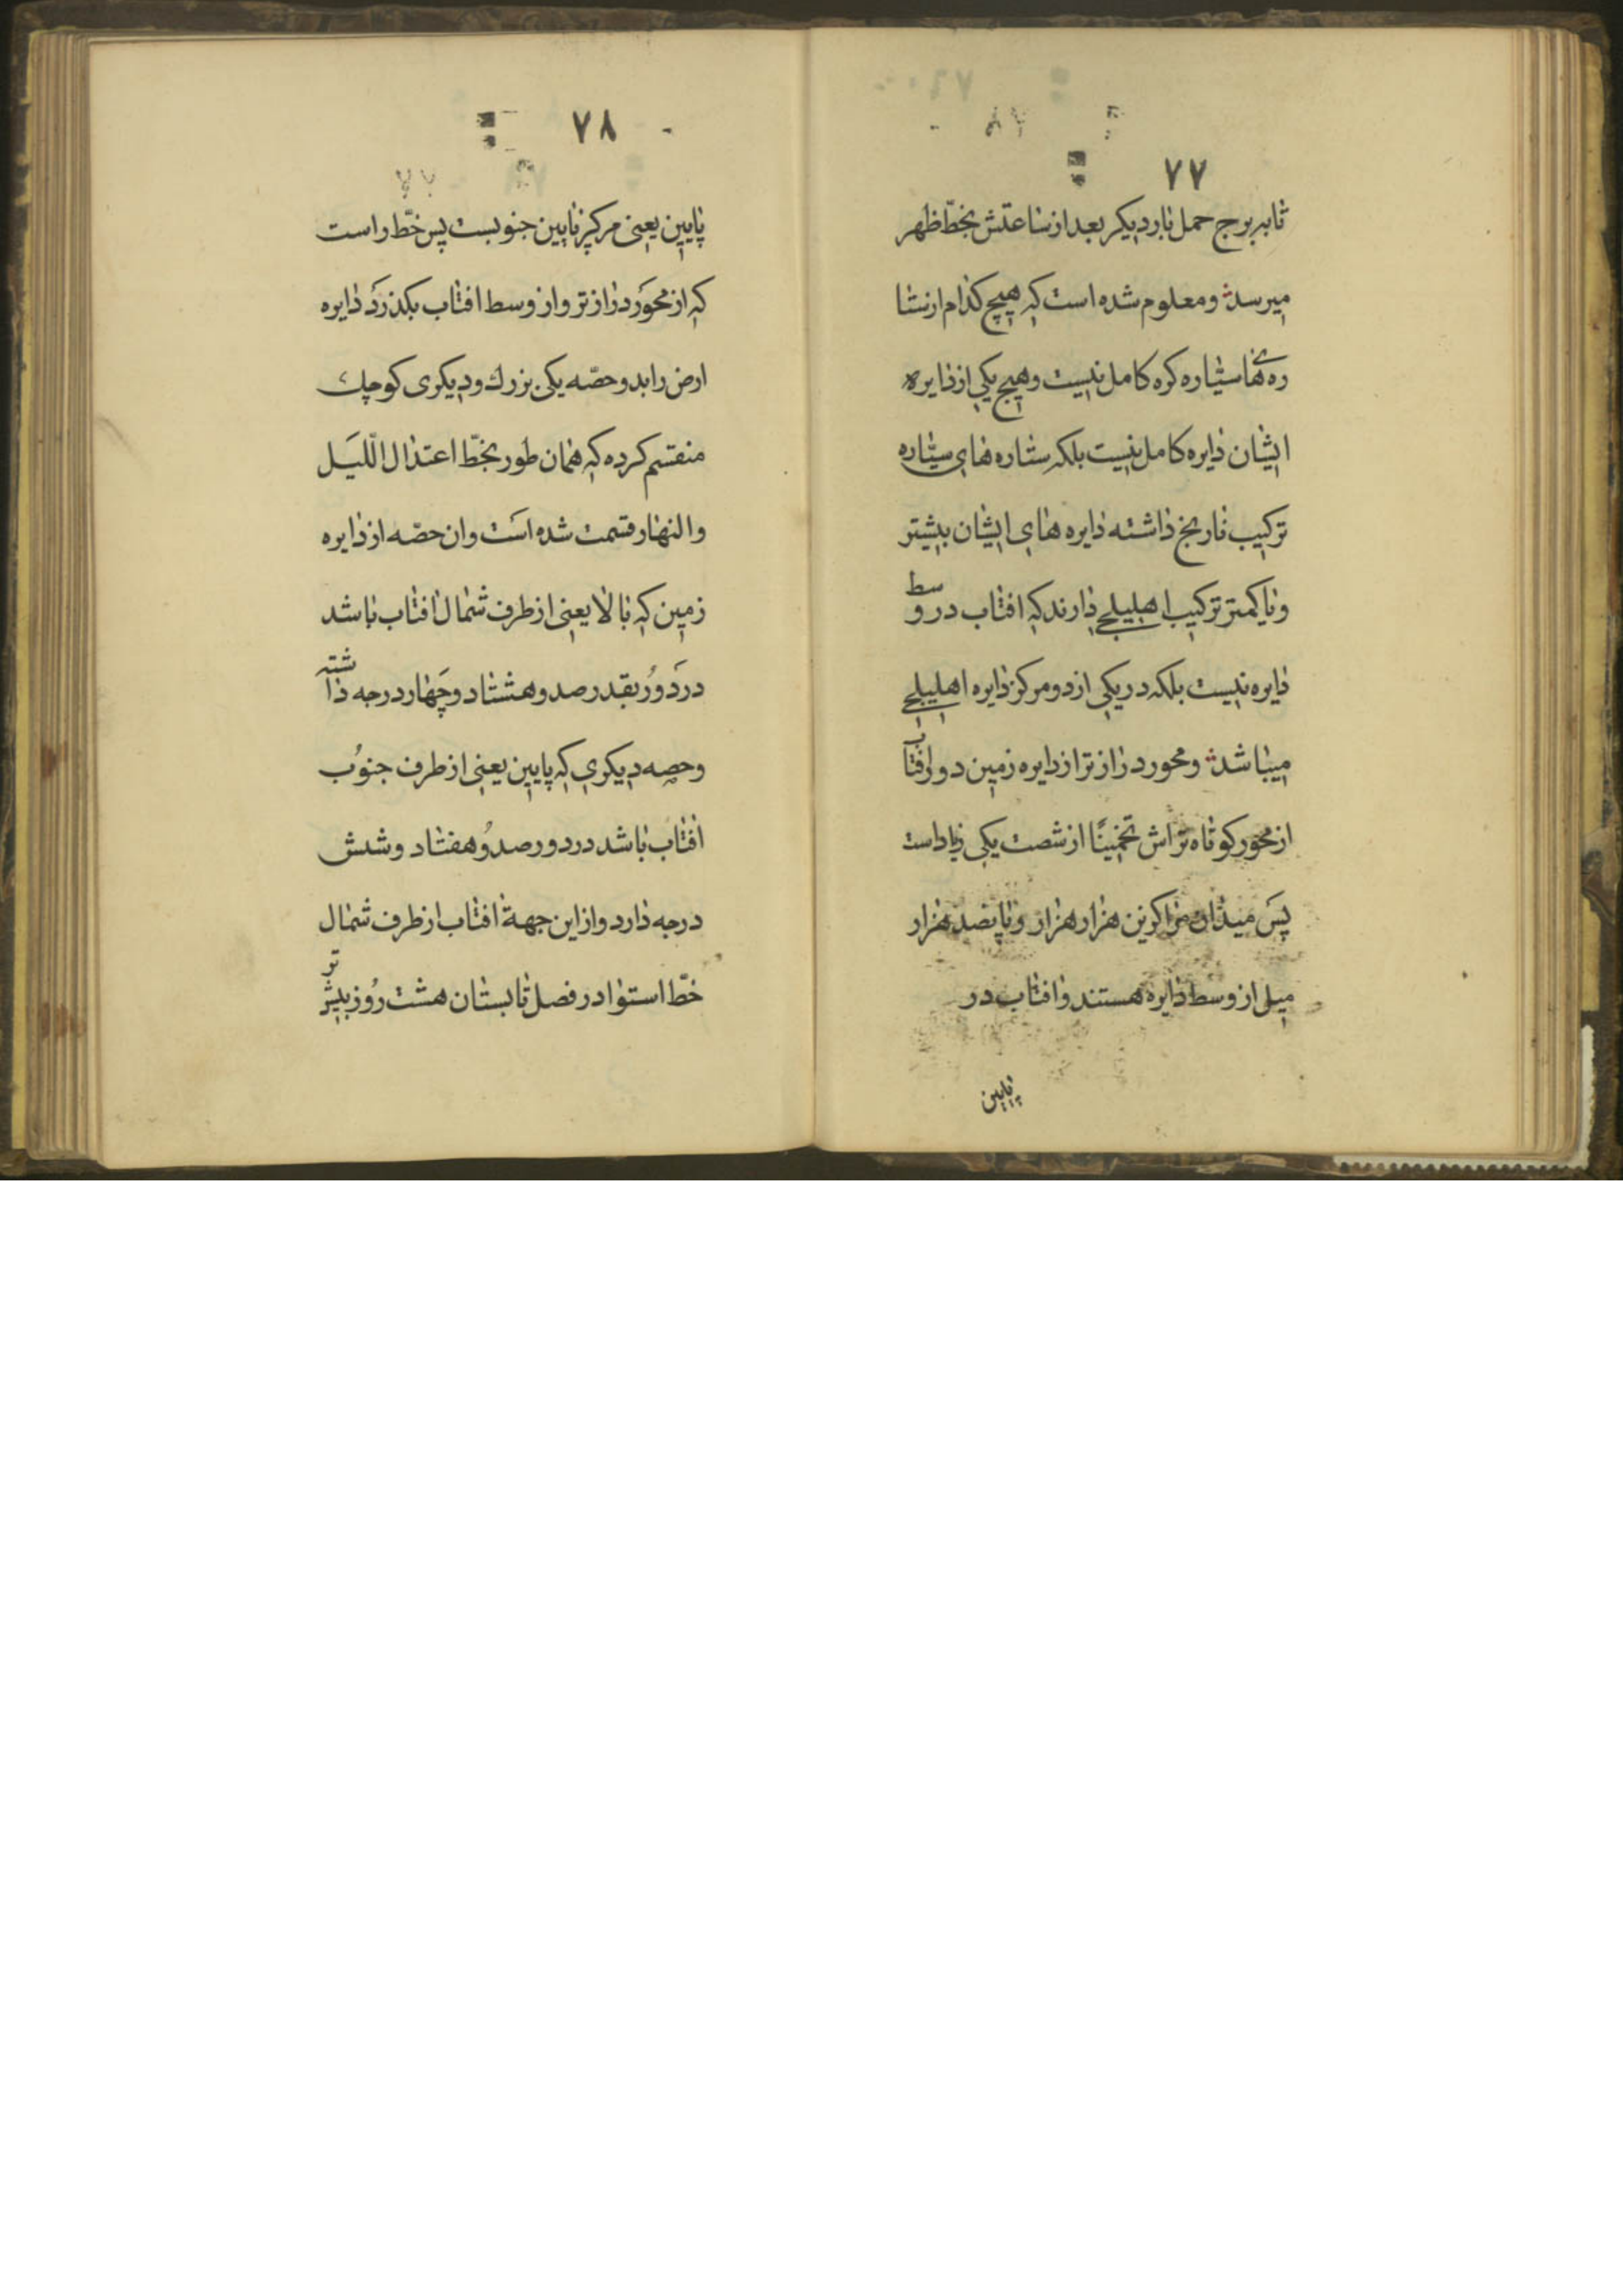 ۷۷
تا به برج حمل بار دیکر بعد از ساعتش بخطّ ظهر
میرسد و معلوم شده است که هیچ کدام از ستا
ره های سیّاره کره کامل نیست و هیچ یکی از دایره
ایشان دایره کامل نیست بلکه ستاره های سیّاره
ترکیب نارنج داشته دایره های ایشان بیشتر
و یا کمتر ترکیب اهلیلجی دارند که افتاب در وسط
دایره نیست بلکه در یکی از دو مرکز دایره اهلیلجی
میباشد و محور دراز تر از دایره زمین دور افتاب
از محور کوتاه تر اش تخمینًا از شصت یکی زیاد است
پس میدان مراکزین هزار هزار و پانصد هزار
میل از وسط دایره هستند و افتاب در
پایین
۷۸
پایین یعنی مرکز پایین جنوبست پس خطّ راست
که از محور دراز تر و از وسط افتاب بکذرد دایره
ارض را بدو حصّه یکی بزرك و دیکری کوچك
منقسم کرده که همان طور بخطّ اعتدال الّلیل
والنهار قسمت شده است و ان حصّه از دایره
زمین که بالا یعنی از طرف شمال افتاب باشد
در دور بقدر صد و هشتاد و چهار درجه داشته
و حصه دیکری که پایین یعنی از طرف جنوب
افتاب باشد در دور صد و هفتاد و شش
درجه دارد و از این جهة افتاب از طرف شمال
خطّ استوا در فصل تابستان هشت روز بیشتر